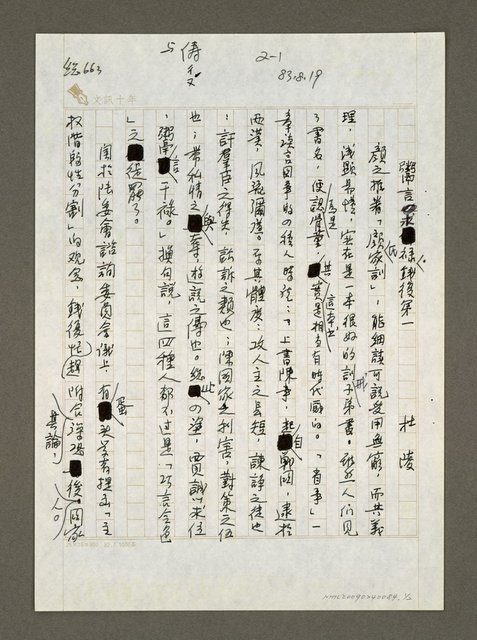 总663
与
俦受
2-1
83.8.19
文訊十年
鬻言求祿錢後第一
杜陵
顏之推著「顏氏家訓」,能細讀可說受用無窮,而其義
理,淺顯易懂,實在是一本很好的訓子弟書。雖然人們見
了書名,便認為是骨董,其實是相當有時代感的。「省事」一
章談言因事敗的後人時說:「上書陳事,起自戰國,逮於
兩漢,風流彌廣。原其體度:攻人主之長短,諫諍之徒也
;訐羣臣之得失,訟訴之類也;陳國家之利害,對策之伍
也;帶私情之與奪,遊說之儔也。總此四塗,賈誠以求位
,鬻言干祿。」換句話說,這四種人都不過是:「巧言令色
」之徒罷了。
關於陸委會諮詢委員會議上,有學者提出「主
權階段性分割」的觀念,錢後起趕附會
後。國家
其論,